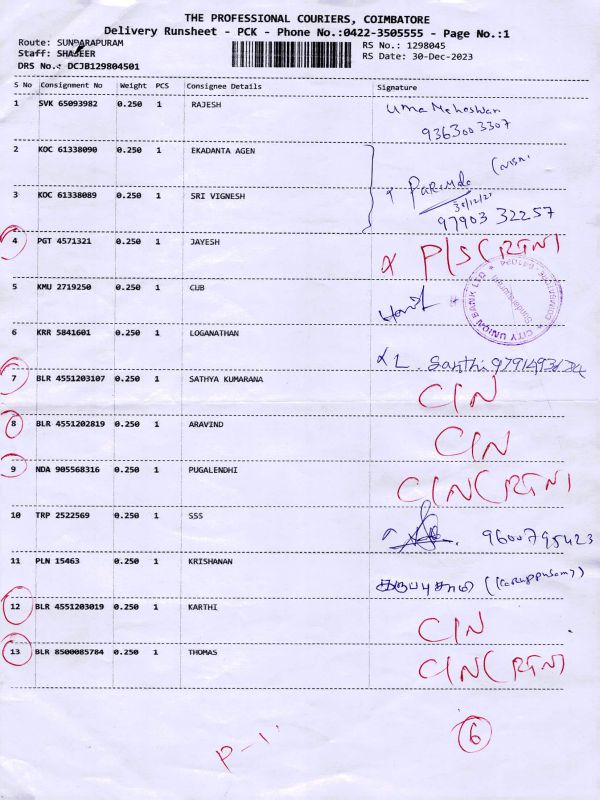 THE PROFESSIONAL COURIERS, COIMBATORE
Delivery Runsheet - PCK - Phone No.:0422-3505555 - Page No.:1
Route: SUNDARAPURAM
Staff: SHAJEER
DRS No.: DCJB129804501
RS No.: 1298045
RS Date: 30-Dec-2023
S No Consignment No Weight PCS Consignee Details Signature
1 SVK 65093982 0.250 1 RAJESH Uma Maheswari
9363003307
2 KOC 61338090 0.250 1 EKADANTA AGEN
3 KOC 61338089 0.250 1 SRI VIGNESH
30/12/23
97903 32257
4 PGT 4571321 0.250 1 JAYESH P/S (RTN)
5 KMU 2719250 0.250 1 CUB
CITY UNION BANK LTD
6 KRR 5841601 0.250 1 LOGANATHAN
L. Santhi
7 BLR 4551203107 0.250 1 SATHYA KUMARANA
C/N
8 BLR 4551202819 0.250 1 ARAVIND
C/N
9 NDA 905568316 0.250 1 PUGALENDHI
C/N (RTN)
10 TRP 2522569 0.250 1 SSS
9600795423
11 PLN 15463 0.250 1 KRISHANAN
கருப்புசாமி (Karuppusamy)
12 BLR 4551203019 0.250 1 KARTHI
C/N
13 BLR 8500085784 0.250 1 THOMAS
C/N (RTN)
6
P-1